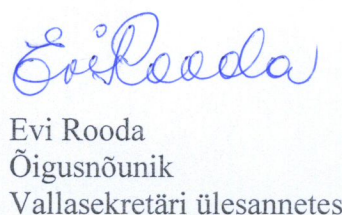 Evi Rooda
Evi Rooda
Õigusnõunik
Vallasekretäri ülesannetes